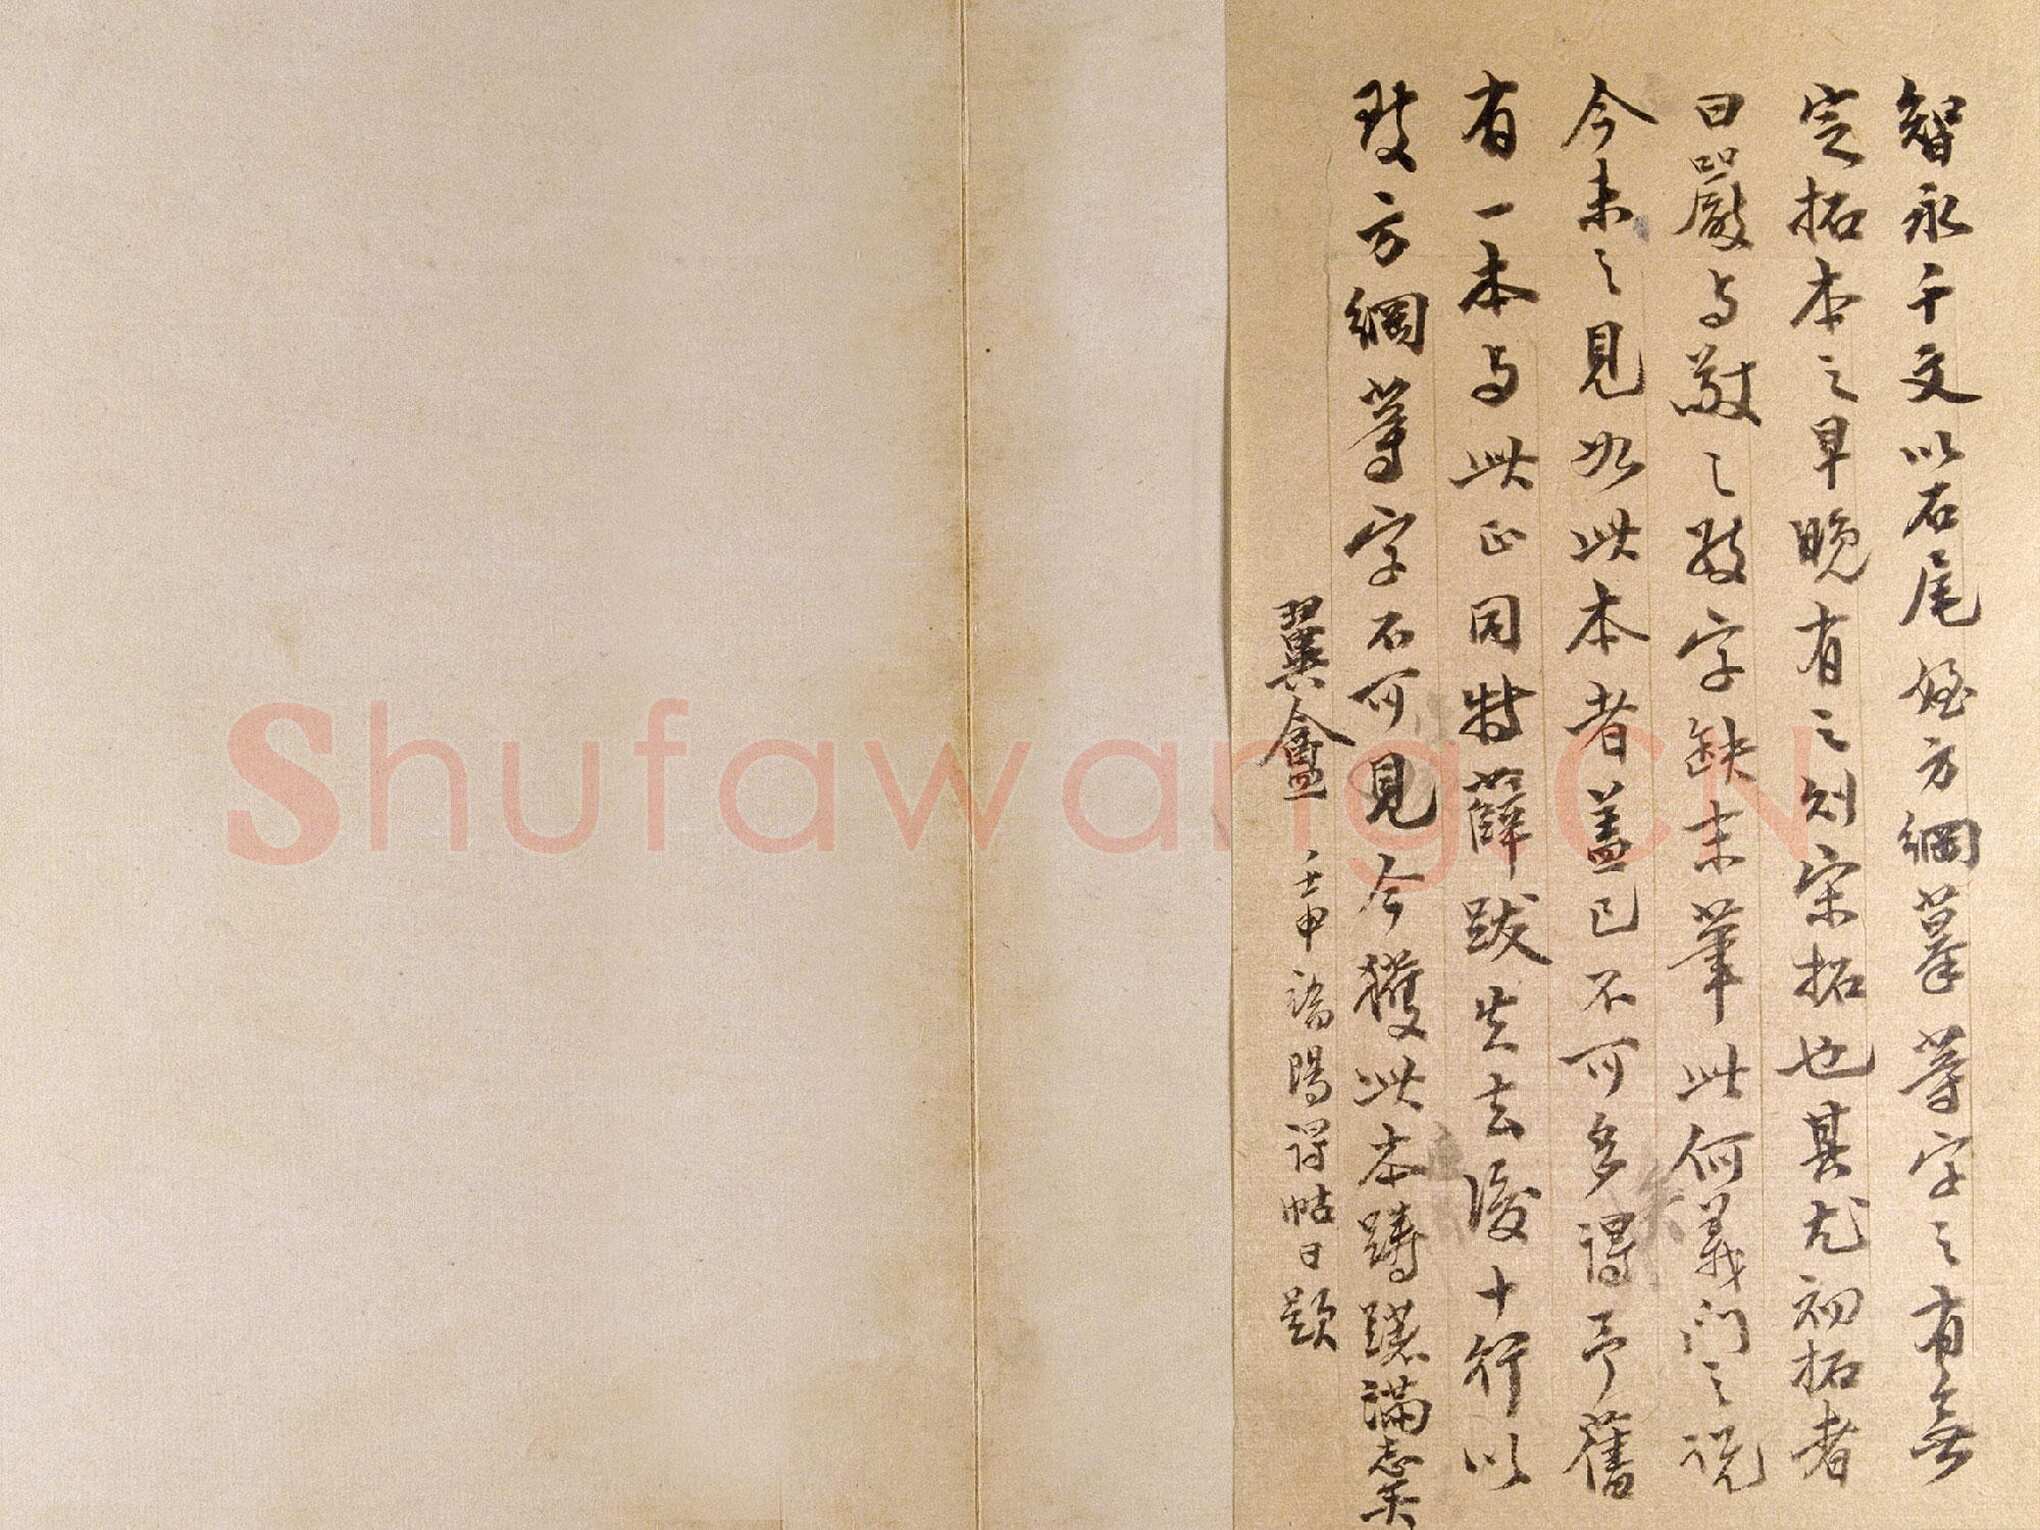 智永千文以石尾姪方綱摹等字之有無
定拓本之早晚有之则宋拓也其尤初拓者
曰嚴与敬之敬字缺末筆此何義門之说
今未之見如此本者蓋已不可多得予舊
有一本与此正同特薛跋失去後十行以
致方綱等字不可見今獲此本躊躇滿志矣
翼盫 壬申 陽得帖日題
Shufawang.CN